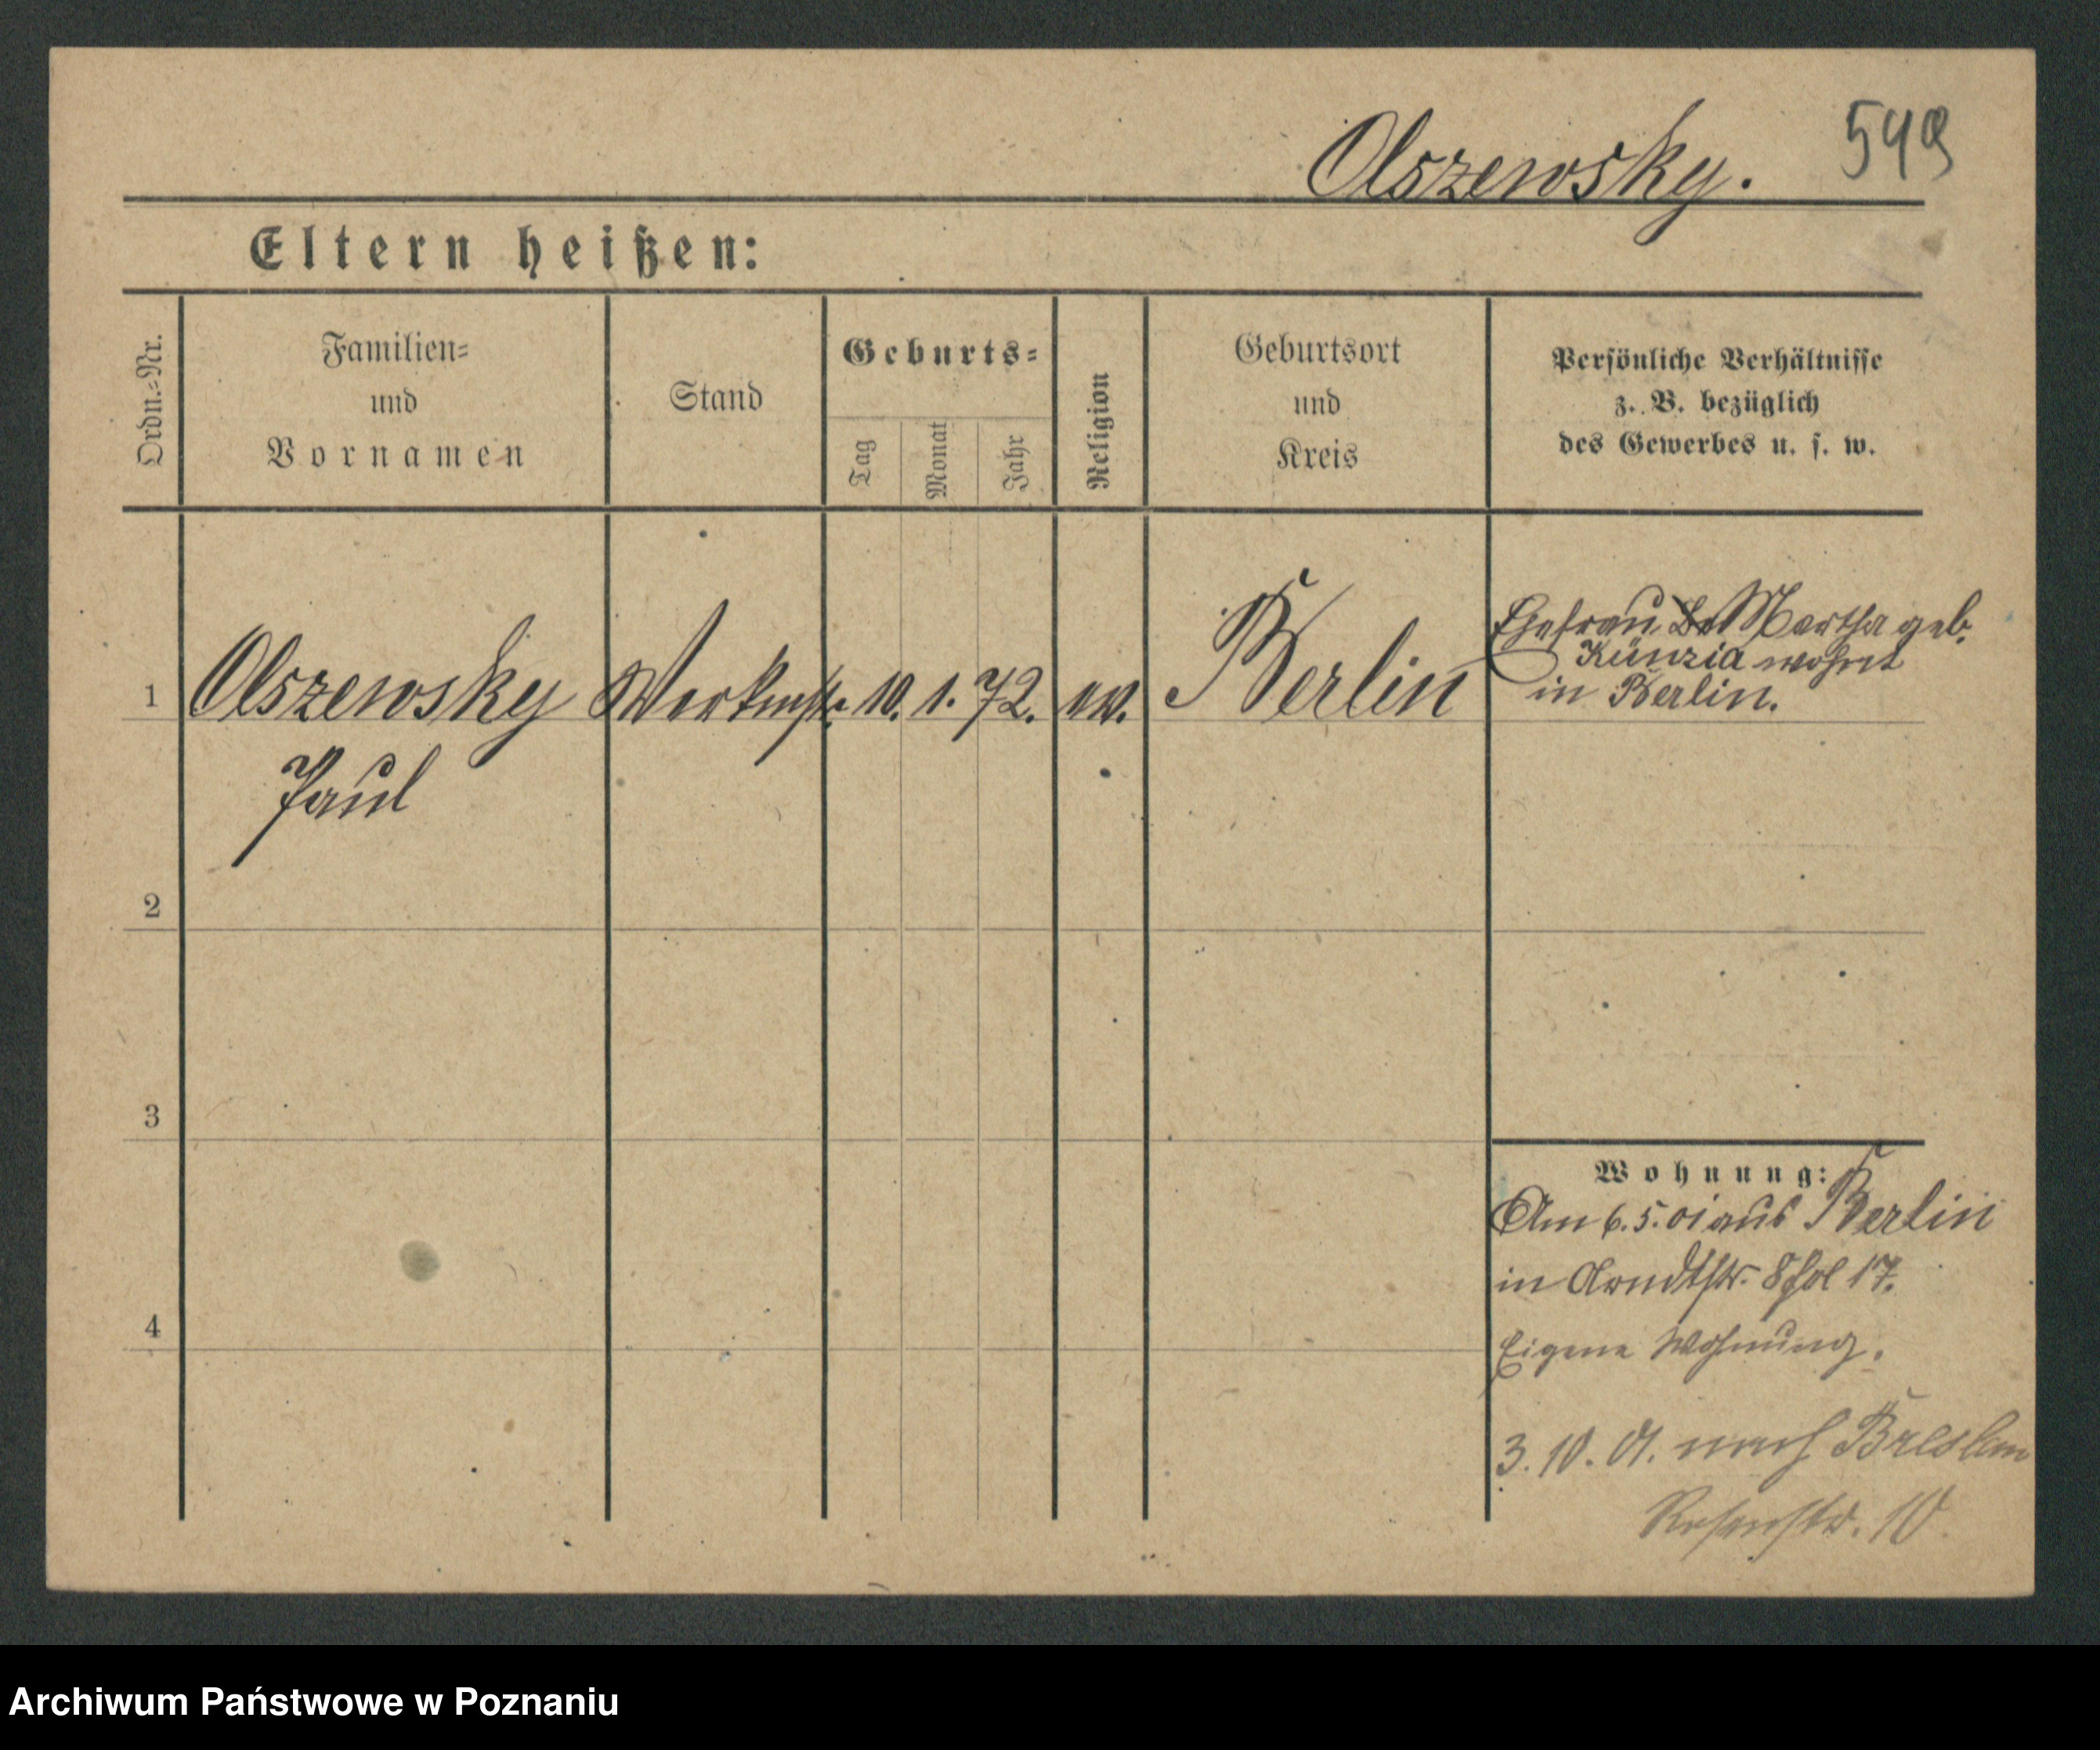 Olszewsky.
549
Eltern heißen:
Ordn.-Nr.
Familien-
und
Vornamen
Stand
Geburts-
Tag
Monat
Jahr
Religion
Geburtsort
und
Kreis
Persönliche Verhältnisse
z. B. bezüglich
des Gewerbes u. s. w.
1 Olszewsky Werkmstr. 10. 1. 72. ev. Berlin
Paul
Ehefrau Martha geb.
Künzia wohnt
in Berlin.
2
3
4
Wohnung:
Am 6. 5. 01 aus Berlin
in Arndtstr. 8 Fol 17.
Eigene Wohnung.
3. 10. 01. nach Breslau
Rosenstr. 10.
Archiwum Państwowe w Poznaniu